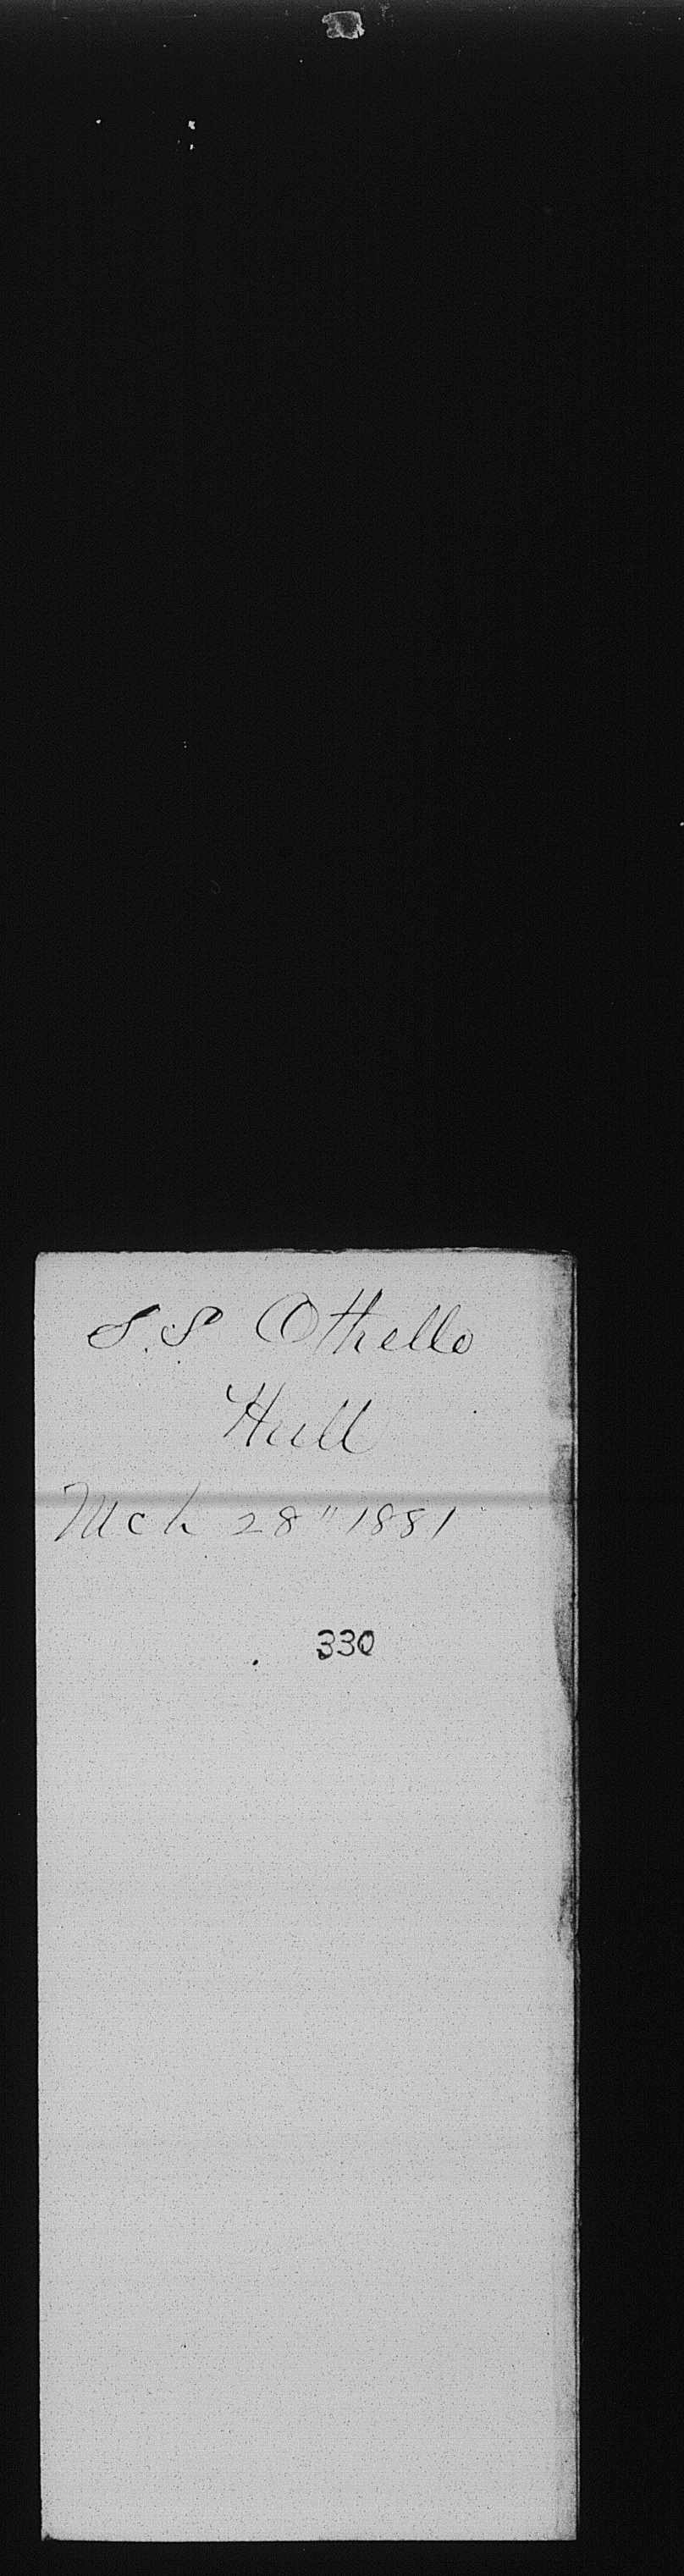 S.S Othello
Hull
Mch 28" 1881
330